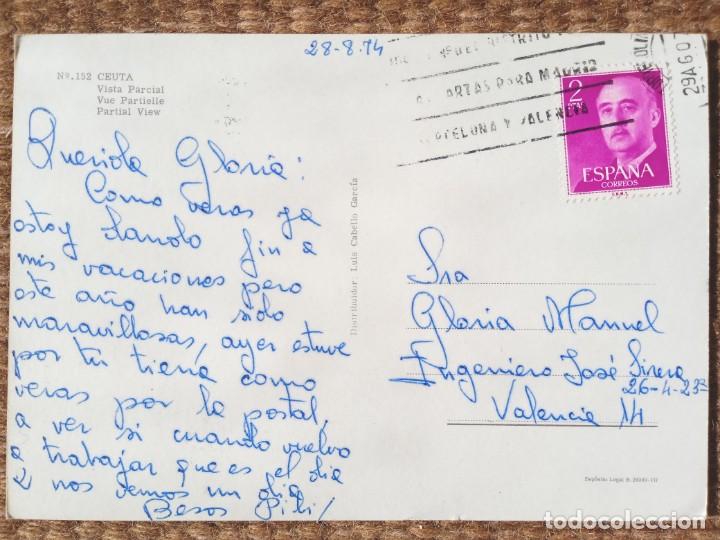 28-8.74
Nº. 152 CEUTA
Vista Parcial
Vue Partielle
Partial View
Querida Gloria:
Como veras ya
estoy dando fin a
mis vacaciones pero
este año han sido
maravillosas, ayer estuve
por tu tierra como
veras por la postal,
a ver si cuando vuelvo
a trabajar que es el dia
2 nos vemos un dia
Besos Pili
Distribuidor: Luis Cabello García
DISTRITO
CARTAS PARA MADRID
BARCELONA Y VALENCIA
29AGO7
2
PTAS
ESPAÑA
CORREOS
Sra
Gloria Manuel
Ingeniero José Sirera
26-4-23ª
Valencia 14
Depósito Legal B.
todocoleccion.net